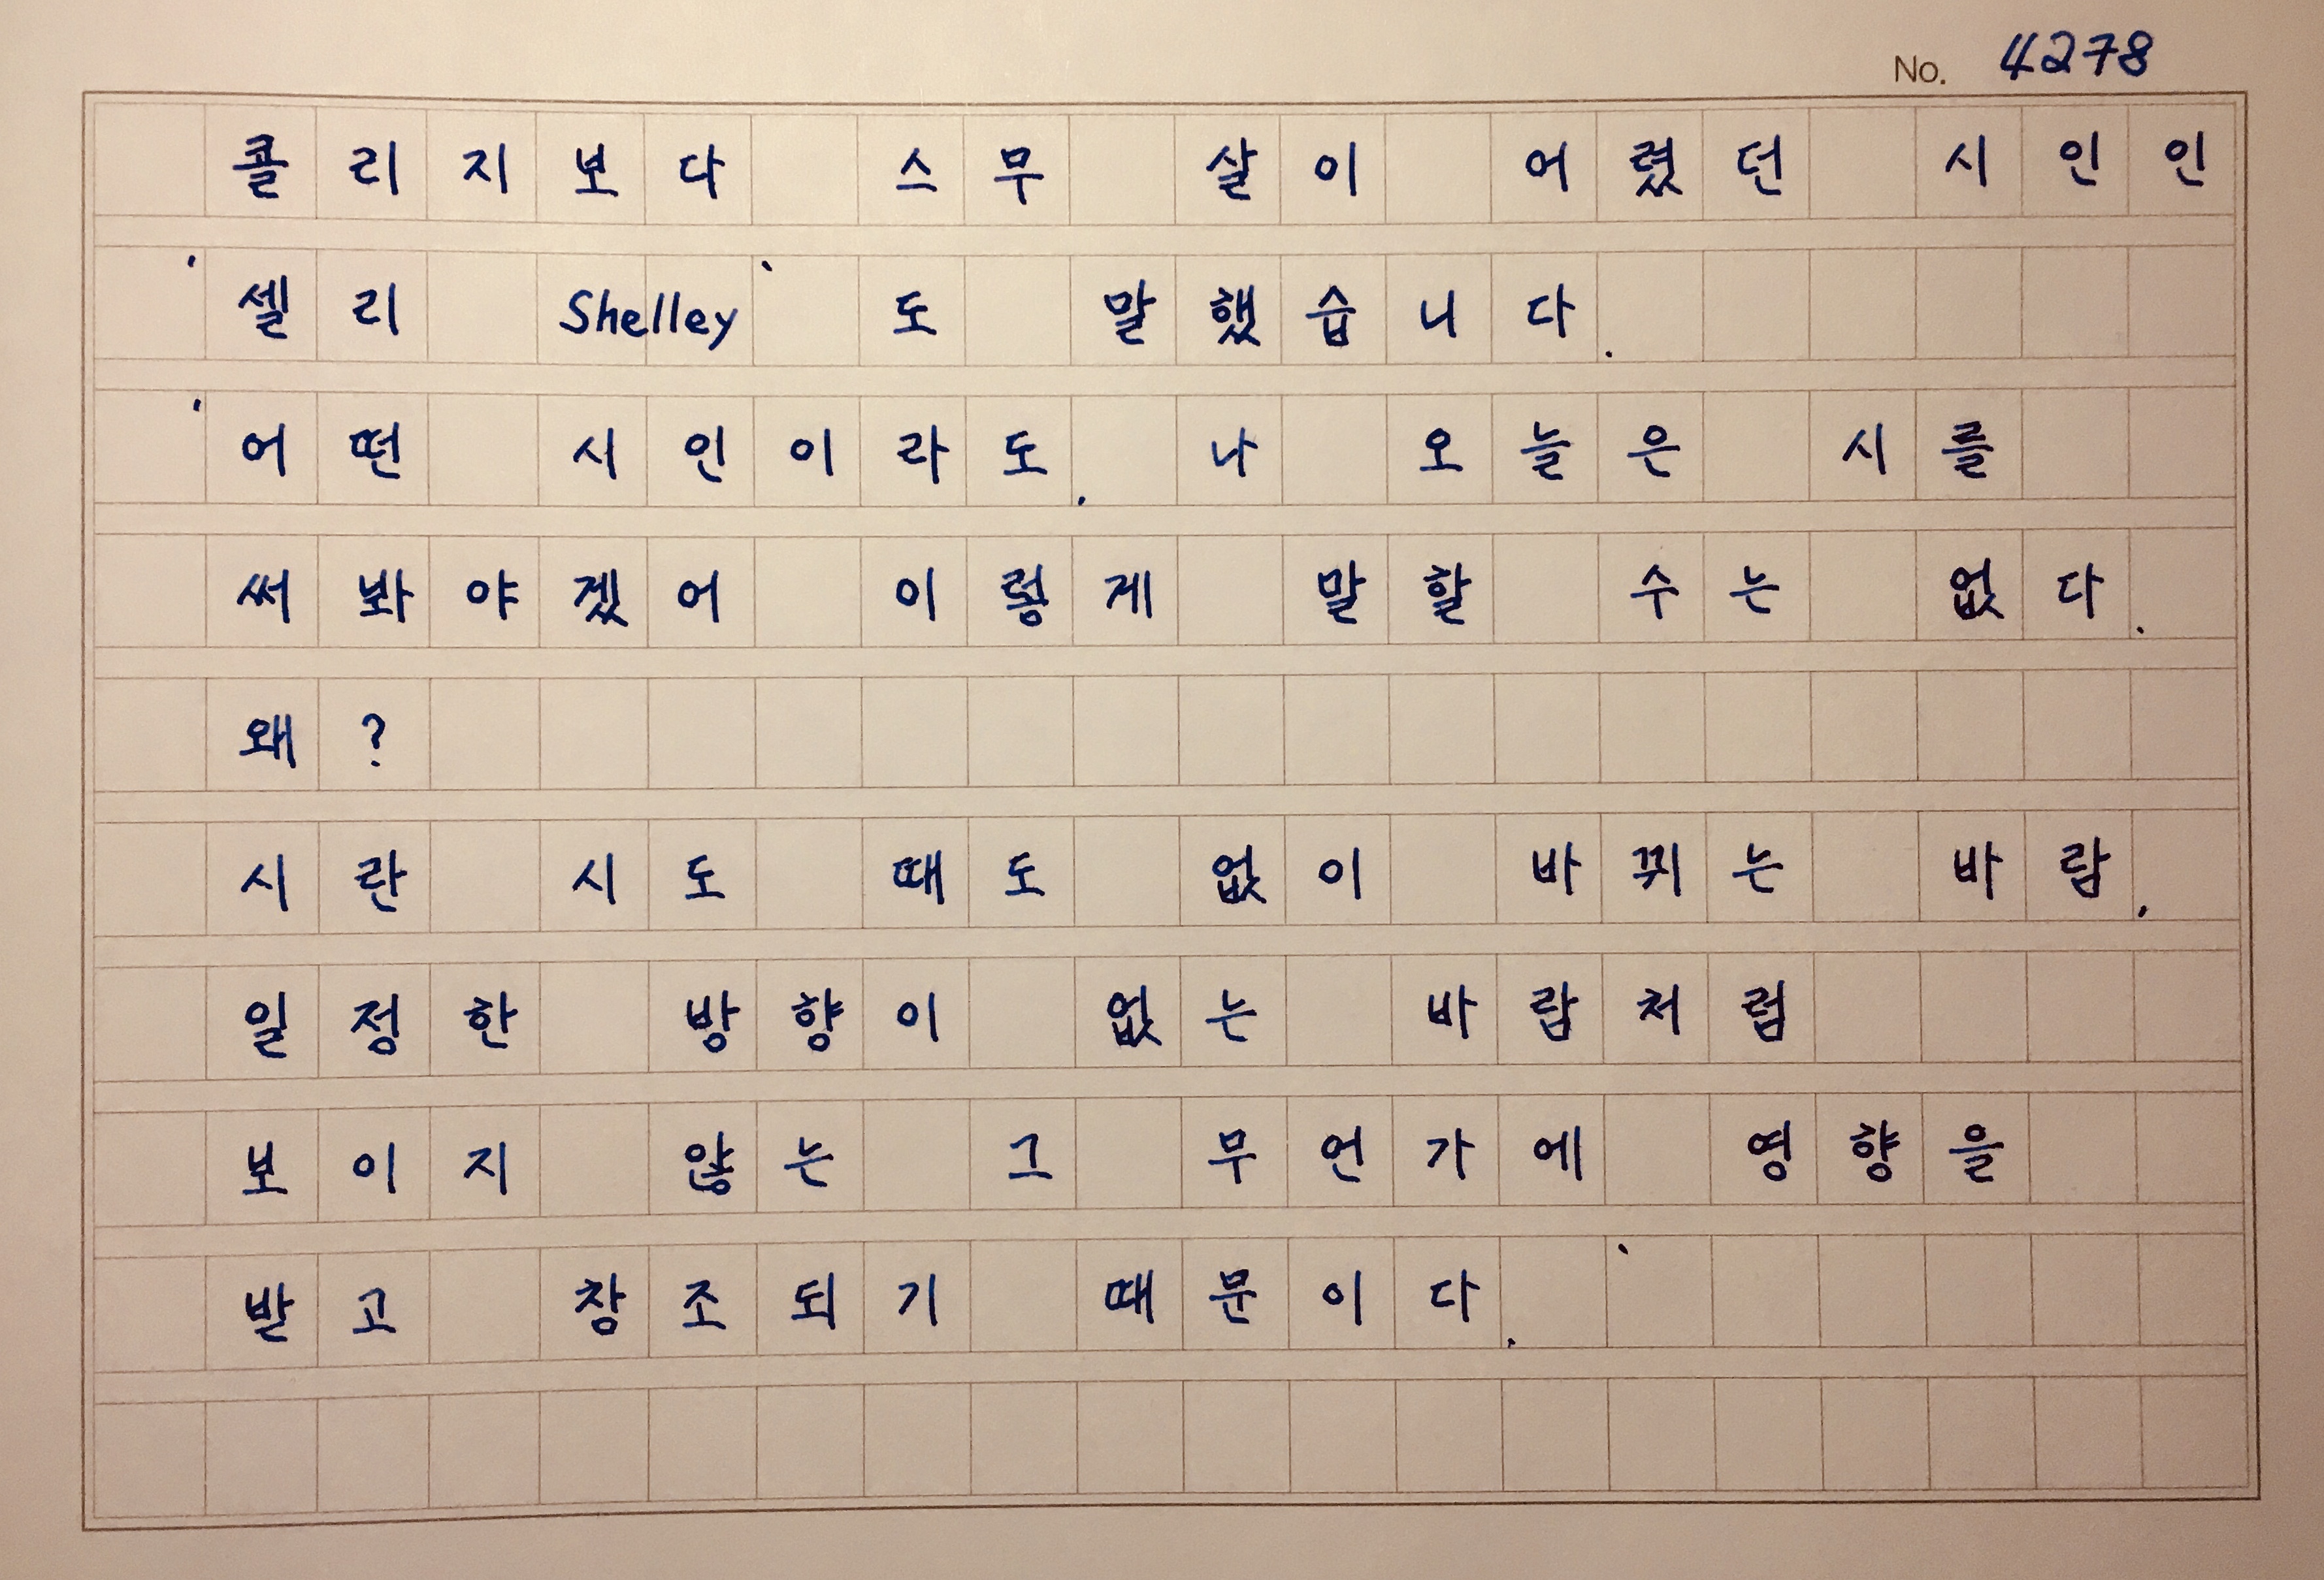 No. 4278
콜리지보다 스무 살이 어렸던 시인인
'셸리 Shelley'도 말했습니다.
'어떤 시인이라도, 나 오늘은 시를
써봐야겠어 이렇게 말할 수는 없다.
왜?
시란 시도 때도 없이 바뀌는 바람,
일정한 방향이 없는 바람처럼
보이지 않는 그 무언가에 영향을
받고 창조되기 때문이다.'